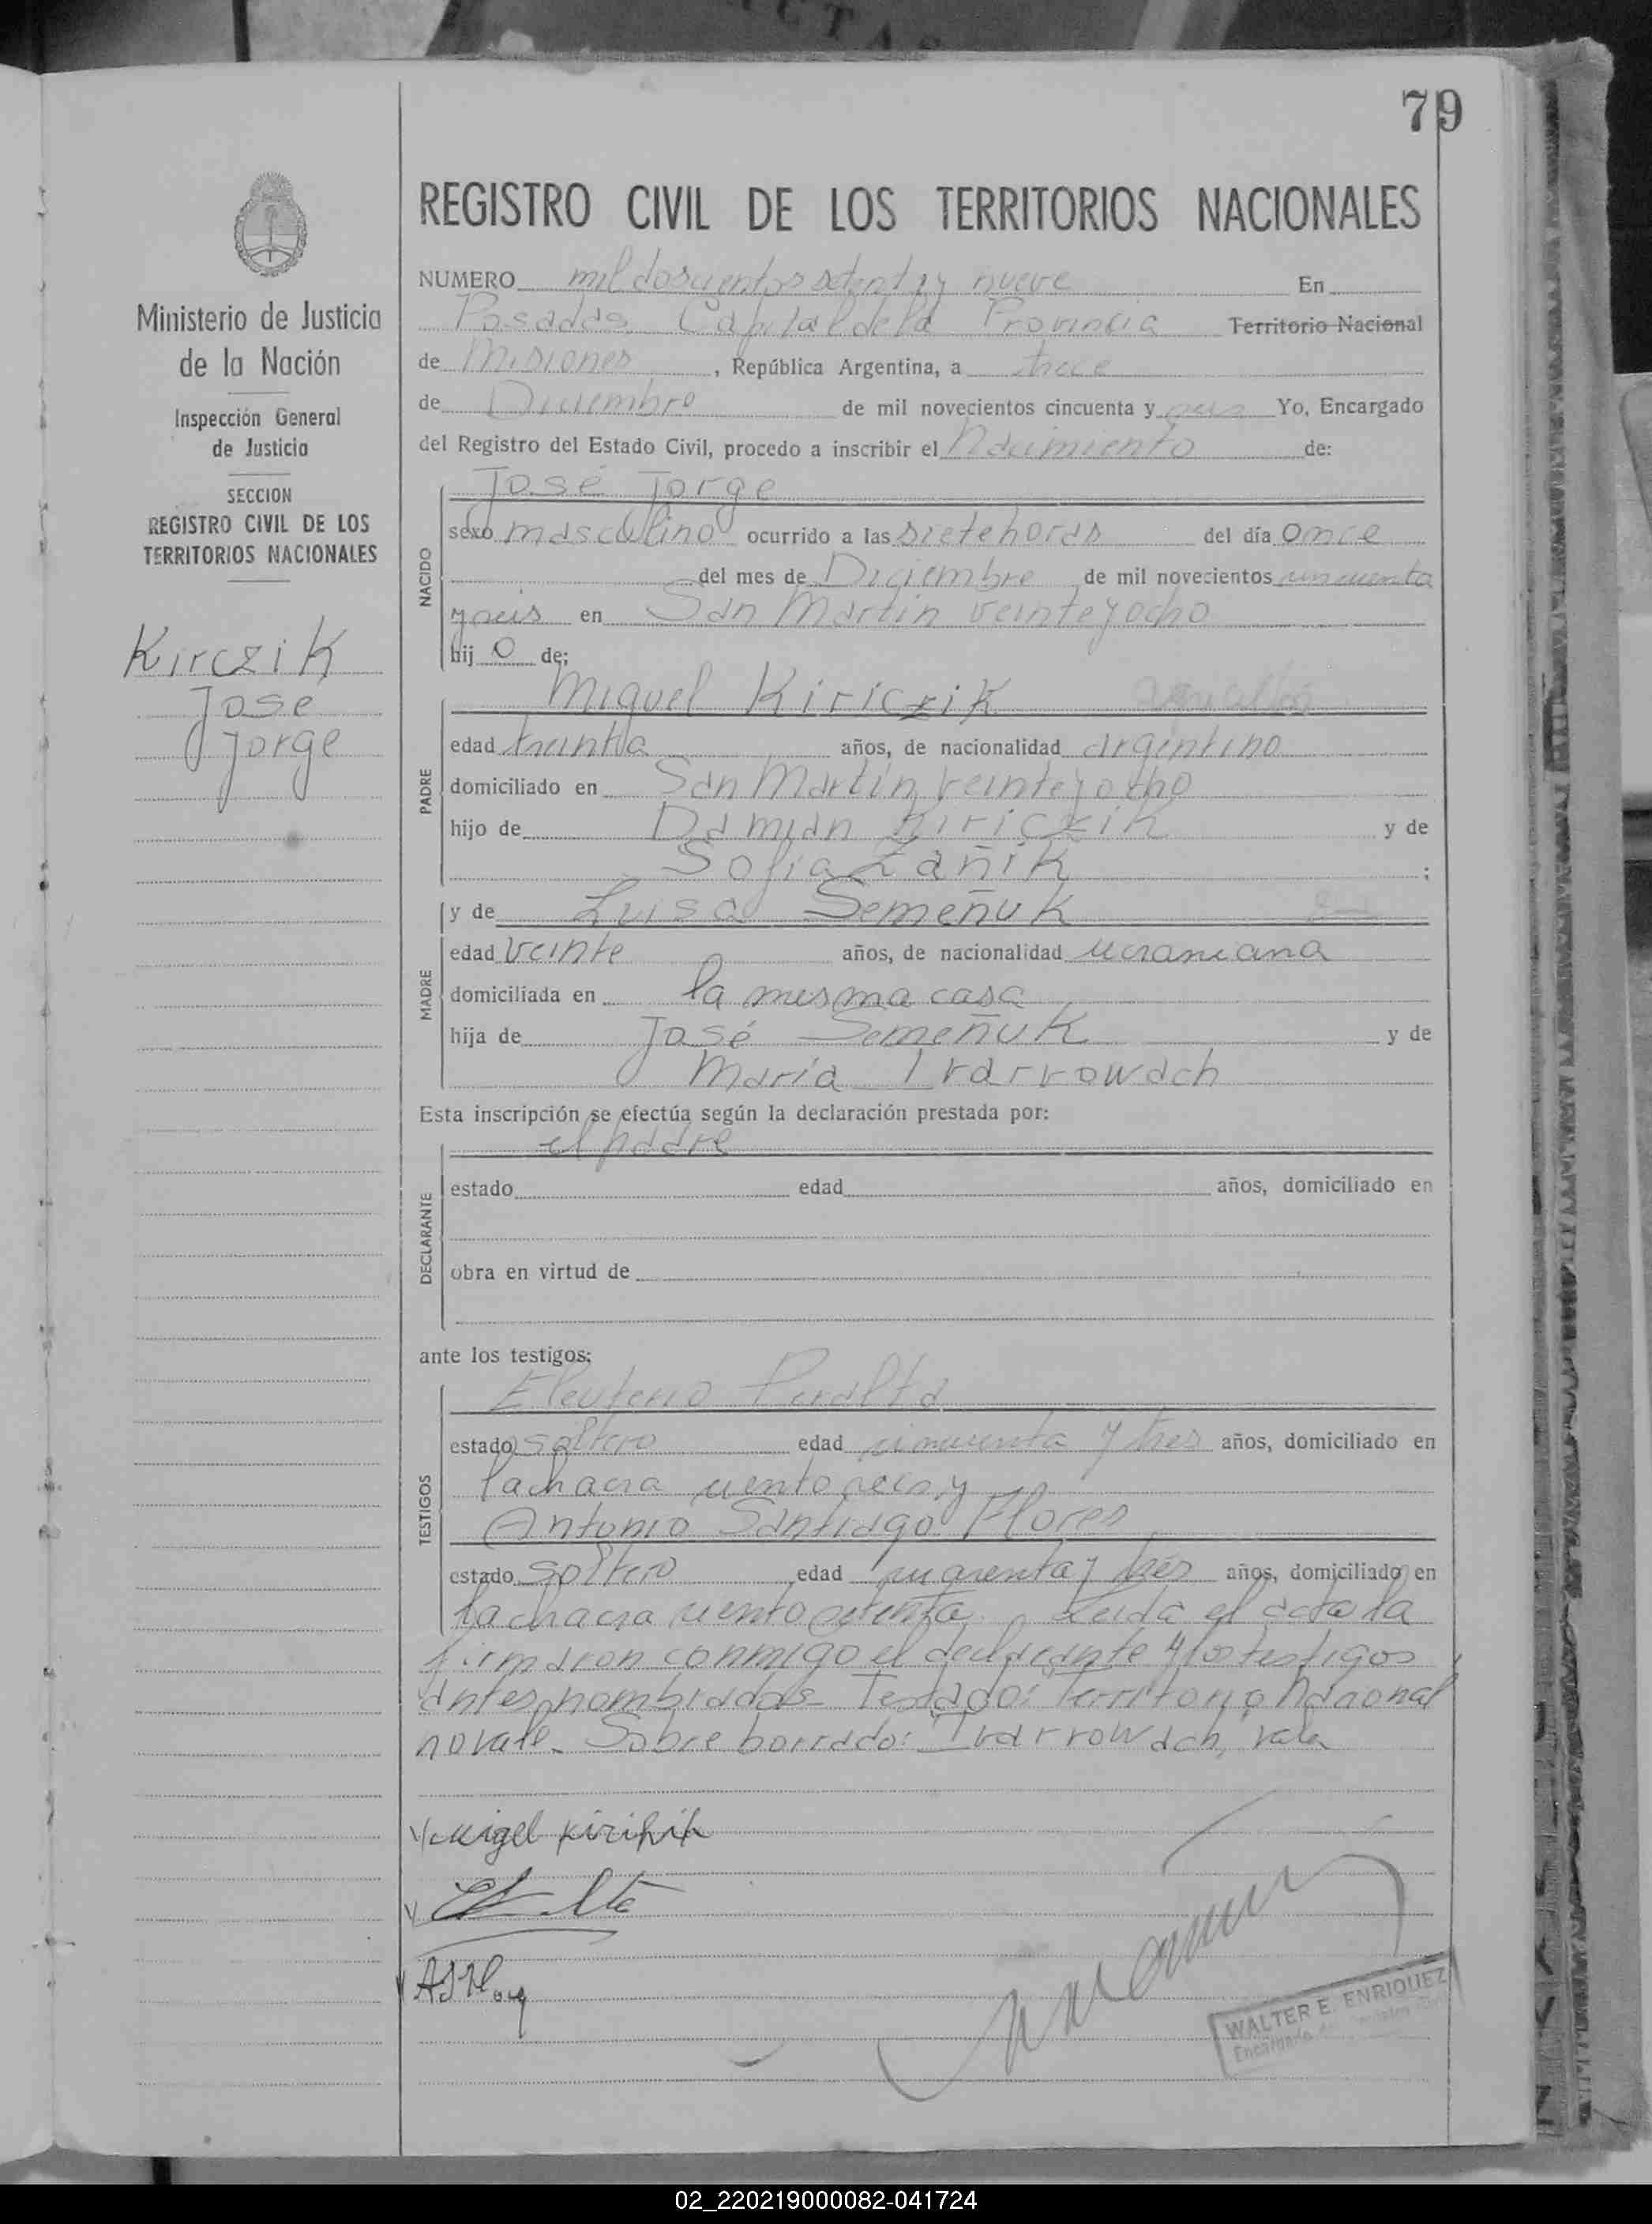 79
REGISTRO CIVIL DE LOS TERRITORIOS NACIONALES
Ministerio de Justicia
de la Nación
Inspección General
de Justicia
SECCION
REGISTRO CIVIL DE LOS
TERRITORIOS NACIONALES
Kirczik
José
Jorge
NUMERO mil doscientos setenta y nueve En
Posadas, Capital de la Provincia Territorio Nacional
de Misiones, República Argentina, a trece
de Diciembre de mil novecientos cincuenta y seis Yo, Encargado
del Registro del Estado Civil, procedo a inscribir el Nacimiento de:
NACIDO
José Jorge
sexo masculino ocurrido a las siete horas del día once
del mes de Diciembre de mil novecientos cincuenta
y seis en San Martín veinte y ocho
hij o de:
PADRE
Miguel Kiriczik
edad treinta años, de nacionalidad argentino
domiciliado en San Martín veinte y ocho
hijo de Damián Kiriczik y de
Sofía Zañik ;
MADRE
y de Luisa Semeñuk
edad veinte años, de nacionalidad ucraniana
domiciliada en la misma casa
hija de José Semeñuk y de
María Ivarrowach
Esta inscripción se efectúa según la declaración prestada por:
DECLARANTE
el padre
estado edad años, domiciliado en
obra en virtud de
ante los testigos:
TESTIGOS
Eleuterio Peralta
estado soltero edad cincuenta y tres años, domiciliado en
la chacra ciento seis, y
Antonio Santiago Flores
estado soltero edad cuarenta y tres años, domiciliado en
la chacra ciento setenta. Leída el acta la
firmaron conmigo el declarante y los testigos
antes nombrados. Testado: Territorio Nacional
no vale. Sobre borrado: Ivarrowach, vale
Migel Kirihik
WALTER E. ENRIQUEZ
Encargado del
02_220219000082-041724